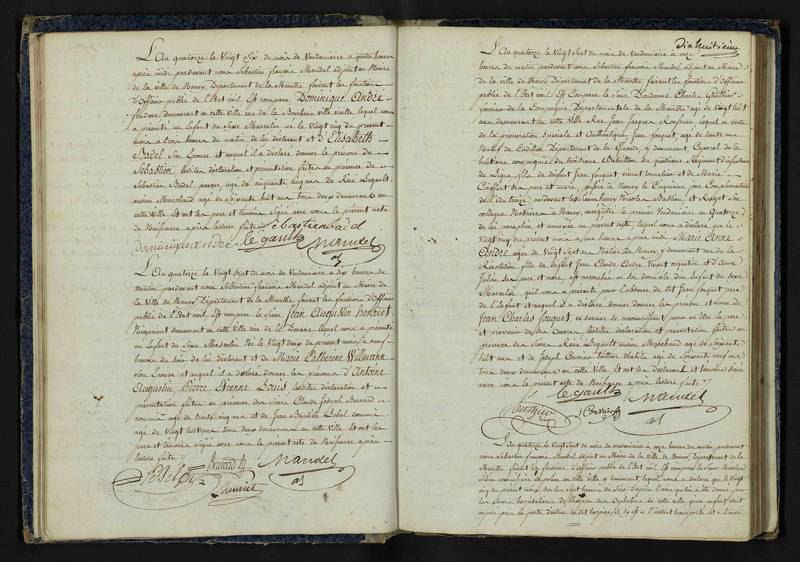 L'an quatorze le Vingt Six du mois de Vendémiaire à quatre heures
après midi pardevant nous Sébastien françois Mandel adjoint au Maire
de la ville de Nancy, Département de la Meurthe faisant les fonctions
d'Officier public de l'Etat civil. Est comparu Dominique André
fondeur, demeurant en cette Ville rue de la Boucherie ville vieille, lequel nous
a présenté un Enfant de Sexe Masculin né le Vingt cinq du présent
mois à trois heures du matin de lui déclarant et d'Elisabeth
Badel son Epouse et auquel il a déclaré donner le prénom de
Sébastien lesdites déclaration et présentation faites en présence de
Sébastien Badel, agé de cinquante cinq ans et de René Legault
ancien Marchand agé de soixante huit ans tous deux demeurant en
cette Ville Et ont les père et témoins Signé avec nous le présent acte
de Naissance après lecture faite Sébastien badel
dominique andré le gault Mandel
aj
L'an quatorze le Vingt Sept du mois de Vendémiaire à dix heures du
matin pardevant nous Sébastien françois Mandel adjoint au Maire de
la Ville de Nancy, Département de la Meurthe faisant les fonctions d'Officier
public de l'Etat civil. Est comparu le Sieur Jean Augustin henriet
Négociant demeurant en cette Ville rue de la Douane lequel nous a présenté
un Enfant du Sexe Masculin Né le Vingt deux du présent mois à neuf
heures du soir de lui déclarant et de Marie Catherine Willmann
son Epouse et auquel il a déclaré donner les prénoms d'Antoine
Augustin Pierre Etienne Louis lesdites déclaration et
présentation faites en présence des Sieurs Claude Joseph Bernard
commis agé de trente cinq ans et de Jean Baptiste Lobel commis
agé de Vingt huit ans tous deux demeurant en cette Ville Et ont les
père et témoins Signé avec nous le présent acte de Naissance après
lecture faite
Bernard Mandel
henriet aj
Dix huitième
L'an quatorze le Vingt Sept du mois de Vendémiaire à onze
heures du matin pardevant nous Sébastien françois Mandel adjoint au Maire
de la ville de Nancy Département de la Meurthe faisant les fonctions d'Officier
public de l'Etat civil. Est Comparu le Sieur Charles Gauthier
de la Compagnie Départementale de la Meurthe agé de Vingt huit
ans demeurant en cette Ville Rue Jean Jacques Rousseau, lequel en vertu
de la procuration Spéciale et Authentique Jean fouquet agé de trente ans
Natif de Cadillac Département de la Gironde, y demeurant, Caporal de la
huitième compagnie du troisième Bataillon du quatrième Régiment d'infanterie
de Ligne, fils de défunt Jean fouquet vivant tonnelier et de Marie
ses père et mère, passée à Nancy le Cinquième jour Complémentaire
de l'an treize pardevant les Sieurs Nicolas Bablon et son
collègue Notaires à Nancy, enregistrée le premier Vendémiaire an Quatorze
de lui paraphée et annexée au présent acte, lequel nous a déclaré que le
Vingt cinq du présent mois à une heure après midi Marie Anne
André agée de Vingt Sept ans Native de Nancy, y demeurant rue de la
Révolution fille de défunt Jean Claude André Vivant et d'Anne
Julien ses père et mère, est accouchée en son domicile d'un Enfant de Sexe
Masculin, qu'il nous a présenté pour l'absence de dit Jean fouquet père
de l'Enfant et auquel il a déclaré donner les prénoms et nom de
Jean Charles fouquet ce dernier se reconnoissant pour en être le père
et provenir de ses œuvres lesdites déclaration et présentation faites en
présence des Sieurs René Legault ancien Marchand agé de Soixante
huit ans et de Joseph tailleur d'habits agé de Soixante neuf ans
tous deux demeurant en cette Ville. Et ont les déclarant et témoins Signé
avec nous le présent acte de Naissance après lecture faite
le gault Mandel
Gauthier aj
L'an quatorze le Vingt Sept du mois de vendémiaire à onze heures du matin, pardevant
nous Sébastien françois Mandel adjoint au Maire de la Ville de Nancy, Département de la
Meurthe, faisant les fonctions d'Officier public de l'Etat civil. Est comparu le Sieur Nicolas
commissaire de police en cette Ville y demeurant, lequel nous a déclaré que le vingt
cinq du présent mois sur les Sept heures du Soir d'après l'avis qui lui a été donné
les Sœurs hospitalières de l'hospice des Orphelins de cette ville qu'un enfant était
exposé près la porte d'entrée du dit hospice, il s'est à l'instant transporté et a trouvé